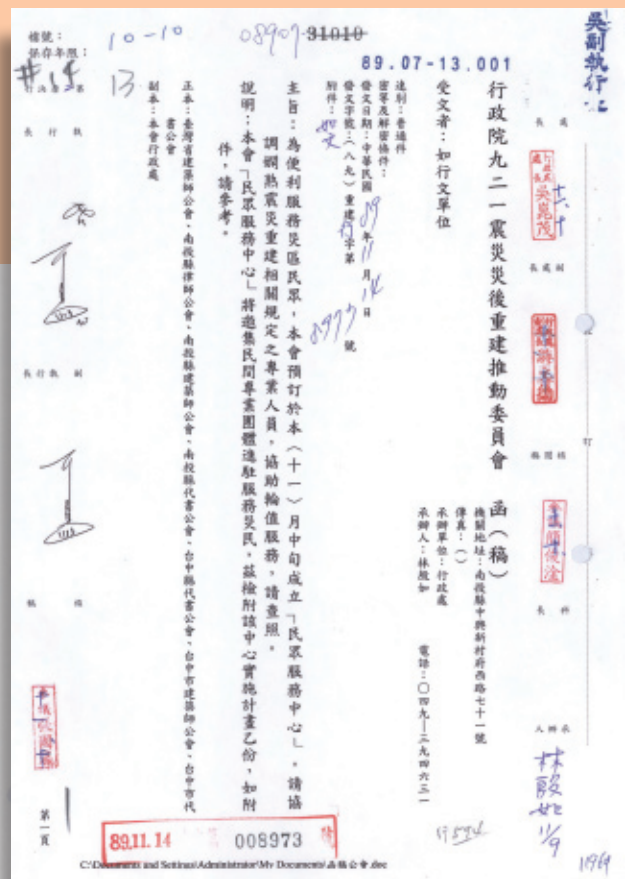 檔號：
保存年限：
10-10
13
08907-31010
89.07-13.001
吳副執行
行政院九二一震災災後重建推動委員會　函（稿）
機關地址：南投縣中興新村府西路七十一號
傳真：（）
承辦單位：行政處
承辦人：林殷如　電話：〇四九—三九四六三一
受文者：如行文單位
速別：普通件
密等及解密條件：
發文日期：中華民國89年11月14日
發文字號：（八九）重建行字第8973號
附件：如文
主旨：為便利服務災區民眾，本會預訂於本（十一）月中旬成立「民眾服務中心」，請協
調嫻熟震災重建相關規定之專業人員，協助輪值服務，請查照。
說明：本會「民眾服務中心」將邀集民間專業團體進駐服務災民，茲檢附該中心實施計畫乙份，如附
件，請參考。
正本：臺灣省建築師公會、南投縣律師公會、南投縣建築師公會、南投縣代書公會、台中縣代書公會、台中市建築師公會、台中市代
書公會
副本：本會行政處
處長
吳崑茂
副處長
科長
承辦人
林殷如 11/9
執行長
副執行長
訂
第一頁
89.11.14
008973
C:\Documents and Settings\Administrator\My Documents\函稿公會.doc
11969